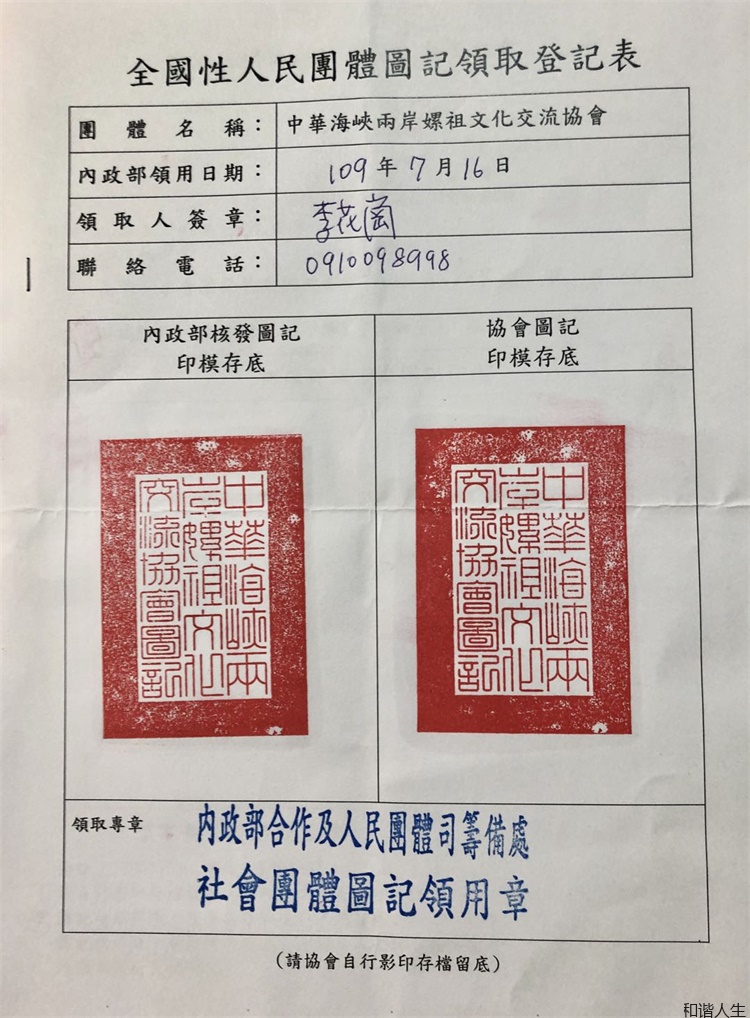 全國性人民團體圖記領取登記表
團體名稱：中華海峽兩岸嫘祖文化交流協會
內政部領用日期：109年7月16日
領取人簽章：李花崗
聯絡電話：0910098998
內政部核發圖記
印模存底
協會圖記
印模存底
中華海峽兩
岸嫘祖文化
交流協會圖記
中華海峽兩
岸嫘祖文化
交流協會圖記
領取專章
內政部合作及人民團體司籌備處
社會團體圖記領用章
(請協會自行影印存檔留底)
和谐人生